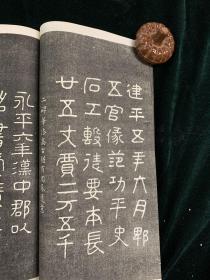 建平五年六月郫
五官掾范功平史
石工毄徒要本長
廿五丈賈二万五千
永平六年漢中郡以
詔書